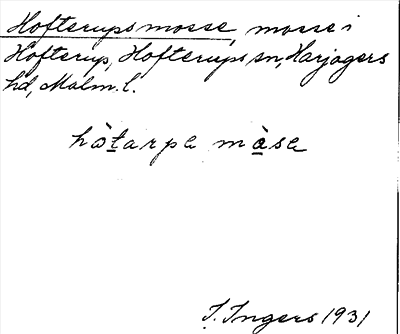 Hofterupsmosse, mosse i
Hofterup, Hofterups sn, Harjagers
hd, Malm. l.
hòtarpa màsa
I. Ingers 1931